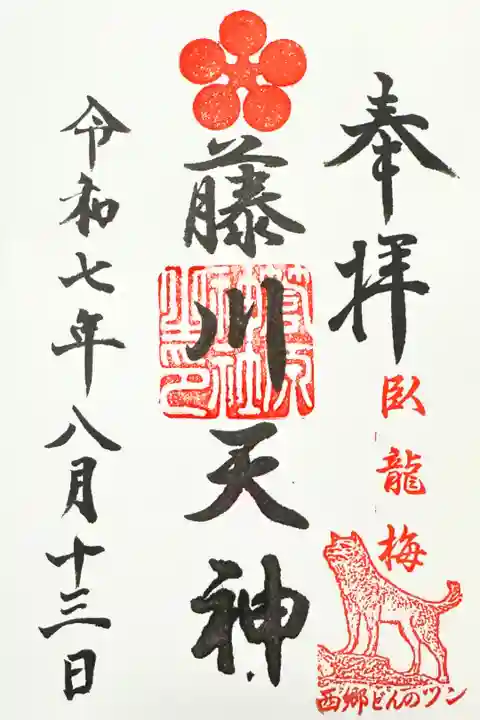 奉拝
臥龍梅
西郷どんのツン
藤川天神
菅原神社之印
令和七年八月十三日